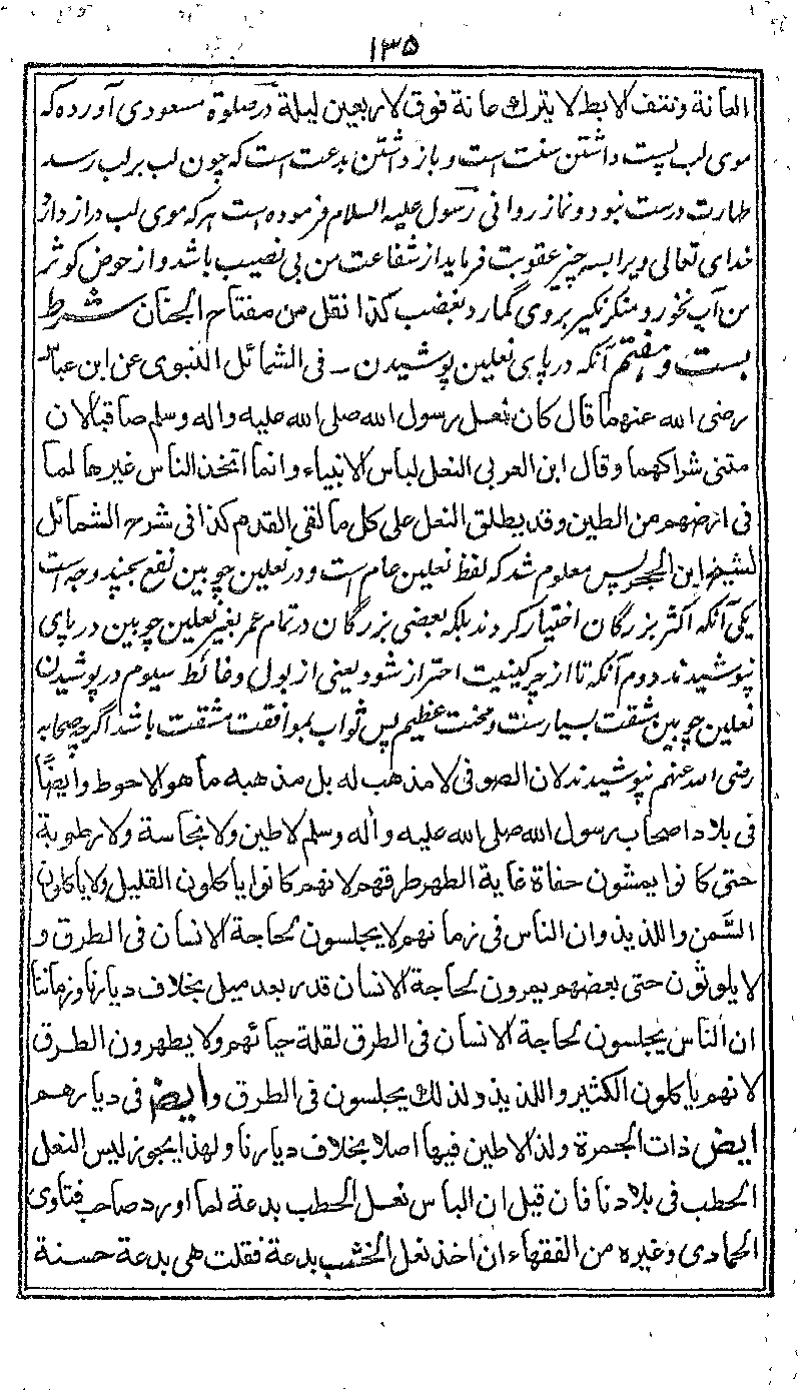 ۱۳۵
العانة ونتف الابط لا يترك عانة فوق لاربعين ليلة در صلوة مسعودی آورده که
موی لب پست داشتن سنت است و باز داشتن بدعت است که چون لب بر لب رسد
طهارت درست نبود و نماز روا نی رسول علیه السلام فرموده است هر که موی لب دراز دارد
خدای تعالی ویرا بسه چیز عقوبت فرماید از شفاعت من بی نصیب باشد و از حوض کوثر
من آب نخورد و منکر نکیر بروی گمارد بغضب کذا نقل من مفتاح الجنان شرط
بست و هفتم آنکه در پای نعلین پوشیدن ـ فی الشمائل النبوی عن ابن عباس
رضی الله عنهما قال كان نعل رسول الله صلی الله عليه واله وسلم صاقبالان
مثنى شراكهما وقال ابن العربی النعل لباس الانبياء وانما اتخذ الناس غيرها لما
فی ارضهم من الطين وقد يطلق النعل علی كل ما لقی القدم كذا فی شرح الشمائل
لشيخ ابن الحجر پس معلوم شد که لفظ نعلین عام است و در نعلین چوبین نفع بچند وجه است
یکی آنکه اکثر بزرگان اختیار کردند بلکه بعضی بزرگان در تمام عمر بغیر نعلین چوبین در پای
نپوشیدند دوم آنکه تا از چرکینیت احتراز شود یعنی از بول و غائط سیوم در پوشیدن
نعلین چوبین مشقت بسیارست و محنت عظیم پس ثواب بموافقت مشقت باشد اگرچه صحابه
رضی الله عنهم نپوشیدند لان الصوفی لا مذهب له بل مذهبه ما هو الاحوط وايضًا
فی بلاد اصحاب رسول الله صلی الله عليه واله وسلم لا طين ولا نجاسة ولا رطوبة
حتی كانوا يمشون حفاة غاية الطهر طرقهم لانهم كانوا ياكلون القليل ولا ياكلون
السَّمن واللذيذ وان الناس فی زمانهم لا يجلسون لحاجة الانسان فی الطرق و
لا يلوثون حتی بعضهم يمرون لحاجة الانسان قدر بعد ميل بخلاف ديارنا وزماننا
ان الناس يجلسون لحاجة الانسان فی الطرق لقلة حيائهم ولا يطهرون الطرق
لانهم ياكلون الكثير واللذيذ ولذلك يجلسون فی الطرق وايض فی ديارهم
ايض ذات الجمرة ولذا لا طين فيها اصلا بخلاف ديارنا ولهذا يجوز لبس النعل
الحطب فی بلادنا فان قيل ان الباس نعل الحطب بدعة لما اورد صاحب فتاوی
الحمادی وغيره من الفقهاء ان اخذ نعل الخشب بدعة فقلت هی بدعة حسنة